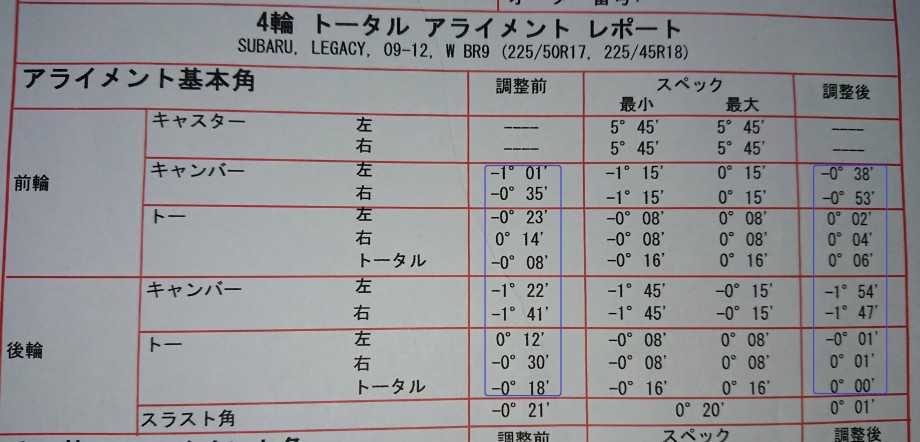 4輪 トータル アライメント レポート
SUBARU, LEGACY, 09-12, W BR9 (225/50R17, 225/45R18)
アライメント基本角 調整前 スペック 調整後
最小 最大
前輪
キャスター 左 ---- 5° 45' 5° 45' ----
右 ---- 5° 45' 5° 45' ----
キャンバー 左 -1° 01' -1° 15' 0° 15' -0° 38'
右 -0° 35' -1° 15' 0° 15' -0° 53'
トー 左 -0° 23' -0° 08' 0° 08' 0° 02'
右 0° 14' -0° 08' 0° 08' 0° 04'
トータル -0° 08' -0° 16' 0° 16' 0° 06'
後輪
キャンバー 左 -1° 22' -1° 45' -0° 15' -1° 54'
右 -1° 41' -1° 45' -0° 15' -1° 47'
トー 左 0° 12' -0° 08' 0° 08' -0° 01'
右 -0° 30' -0° 08' 0° 08' 0° 01'
トータル -0° 18' -0° 16' 0° 16' 0° 00'
スラスト角 -0° 21' 0° 20' 0° 01'
調整前 スペック 調整後